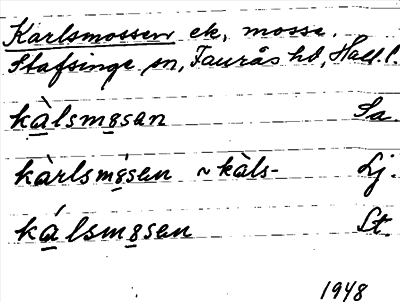 Karlsmossen ek, mosse.
Stafsinge sn, Faurås hd, Hall. l.
kàlsmosan Sa.
kàrlsmósen ~ kàls- Lj.
kálsmosen St.
1948